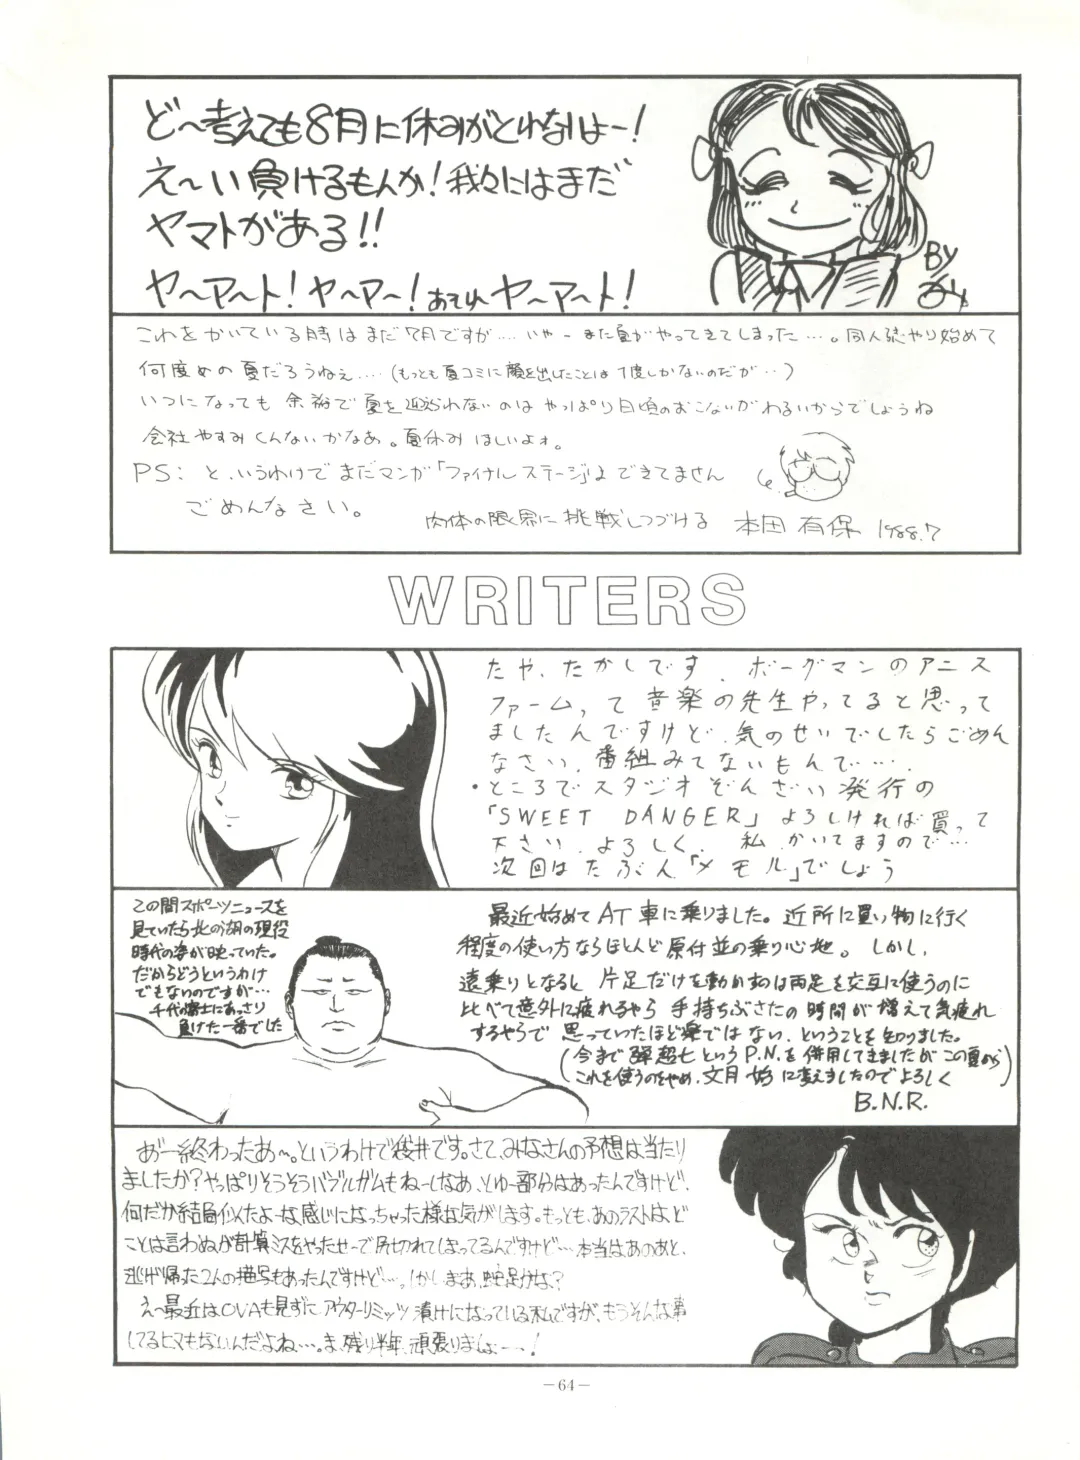 ど〜考えても8月に休みがとれないよー!
え〜い負けるもんか!我々にはまだ
ヤマトがある!!
ヤ〜ア〜ト!ヤ〜ア〜!あてりヘヤ〜ア〜ト!
BY
これをかいている時はまだ7月ですが....いやーまた夏がやってきてしまった....。同人誌やり始めて
何度めの夏だろうねぇ....(もっとも夏コミに顔を出したことは1度しかないのだが..)
いつになっても余裕で夏を迎えられないのはやっぱり日頃のおこないがわるいからでしょうね
会社やすみくんないかなあ。夏休みほしいよォ。
PS:と、いうわけでまだマンガ「ファイナルステージ」はできてません
ごめんなさい。
肉体の限界に挑戦しつづける 本田 有保 1988.7
WRITERS
たや.たかしです.ボーグマンのアニス
ファーム,って音楽の先生やってると思って
ましたんですけど.気のせいでしたらごめん
なさい.番組みてないもんで.....
・ところでスタジオぞんざい発行の
「SWEET DANGER」よろしければ買って
下さい.よろしく.私.かいてますので...
次回はたぶん「メモル」でしょう
この間スポーツニュースを
見ていたら北の湖の現役
時代の姿が映っていた。
だからどうというわけ
でもないのですが…
千代の富士にあっさり
負けた一番でした
最近始めてAT車に乗りました。近所に買い物に行く
程度の使い方ならほとんど原付並の乗り心地。しかし、
遠乗りとなると片足だけを動かすのは両足を交互に使うのに
比べて意外に疲れるやら手持ちぶさたの時間が増えて気疲れ
するやらで思っていたほど楽ではない、ということを知りました。
(今まで弾超七というP.N.を併用してきましたがこの夏から
これを使うのをやめ、文月 始に変えましたのでよろしく)
B.N.R.
おー終わったあ〜。というわけで桜井です。さて、みなさんの予想は当たり
ましたか?やっぱりそうそうバブルガムもねーしなあ、とゆー部分はあったんですけど、
何だか結局似たよーな感じになっちゃった様な気がします。もっとも、あのラストは、ど
ことは言わぬが計算ミスをやったせーで尻切れてしまってるんですけど…本当はあのあと、
逃げ帰った2人の描写もあったんですけど…。しかしまあ、蛇足かな?
え〜最近はOVAも見ずにアウターリミッツ漬けになっている私ですが、もうそんな事
してるヒマもないんだよね…。ま、残り半年、頑張りましょーー!
—64—